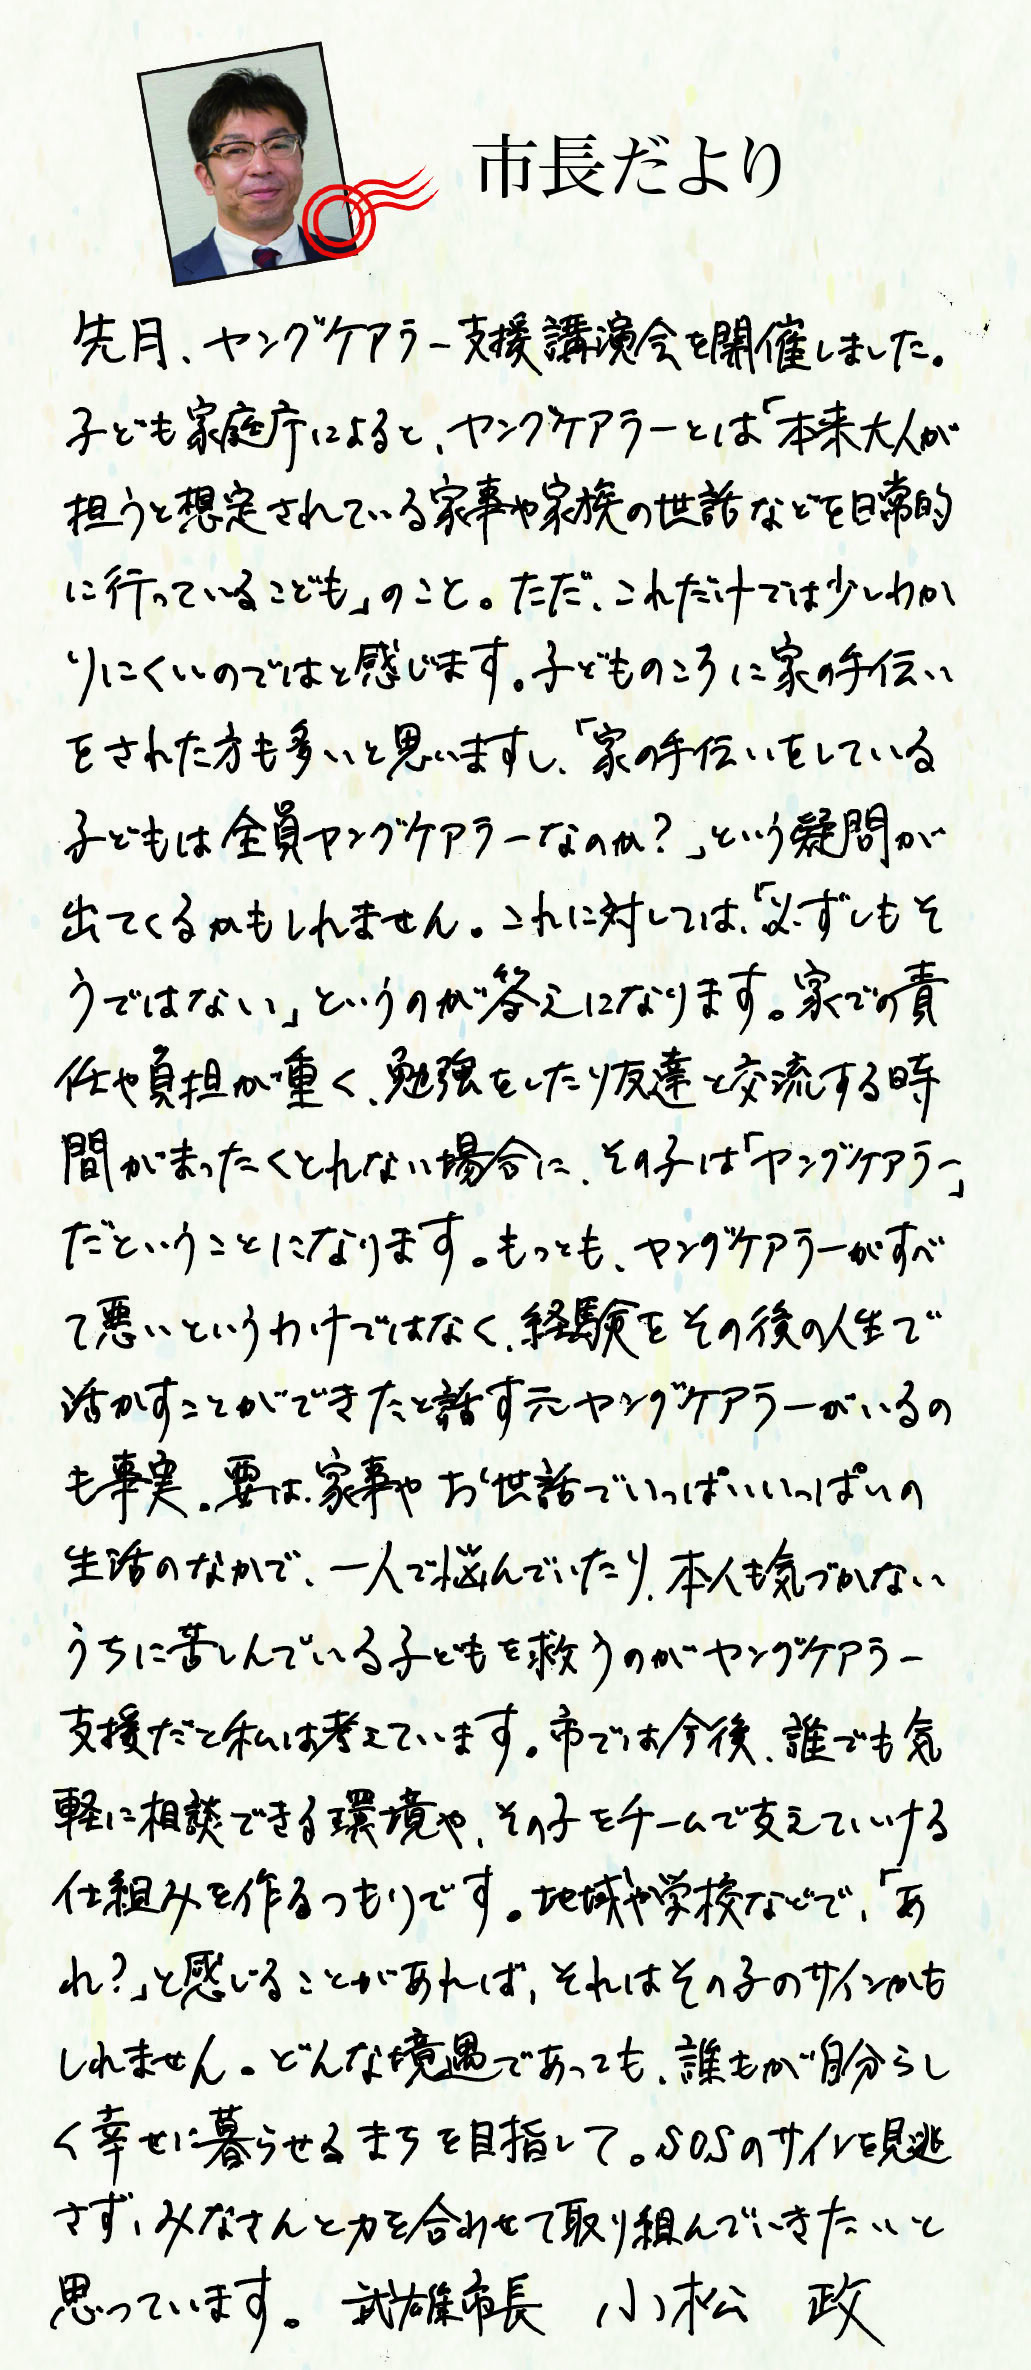 市長だより
先月、ヤングケアラー支援講演会を開催しました。
子ども家庭庁によると、ヤングケアラーとは「本来大人が
担うと想定されている家事や家族の世話などを日常的
に行っているこども」のこと。ただ、これだけでは少しわか
りにくいのではと感じます。子どものころに家の手伝い
をされた方も多いと思いますし、「家の手伝いをしている
子どもは全員ヤングケアラーなのか?」という疑問が
出てくるかもしれません。これに対しては、「必ずしもそ
うではない」というのが答えになります。家での責
任や負担が重く、勉強をしたり友達と交流する時
間がまったくとれない場合に、その子は「ヤングケアラー」
だということになります。もっとも、ヤングケアラーがすべ
て悪いというわけではなく、経験をその後の人生で
活かすことができたと話す元ヤングケアラーがいるの
も事実。要は、家事やお世話でいっぱいいっぱいの
生活のなかで、一人で悩んでいたり、本人も気づかない
うちに苦しんでいる子どもを救うのがヤングケアラー
支援だと私は考えています。市では今後、誰でも気
軽に相談できる環境や、その子をチームで支えていける
仕組みを作るつもりです。地域や学校などで、「あ
れ?」と感じることがあれば、それはその子のサインかも
しれません。どんな境遇であっても、誰もが自分らし
く幸せに暮らせるまちを目指して。SOSのサインを見逃
さず、みなさんと力を合わせて取り組んでいきたいと
思っています。 武雄市長 小松 政